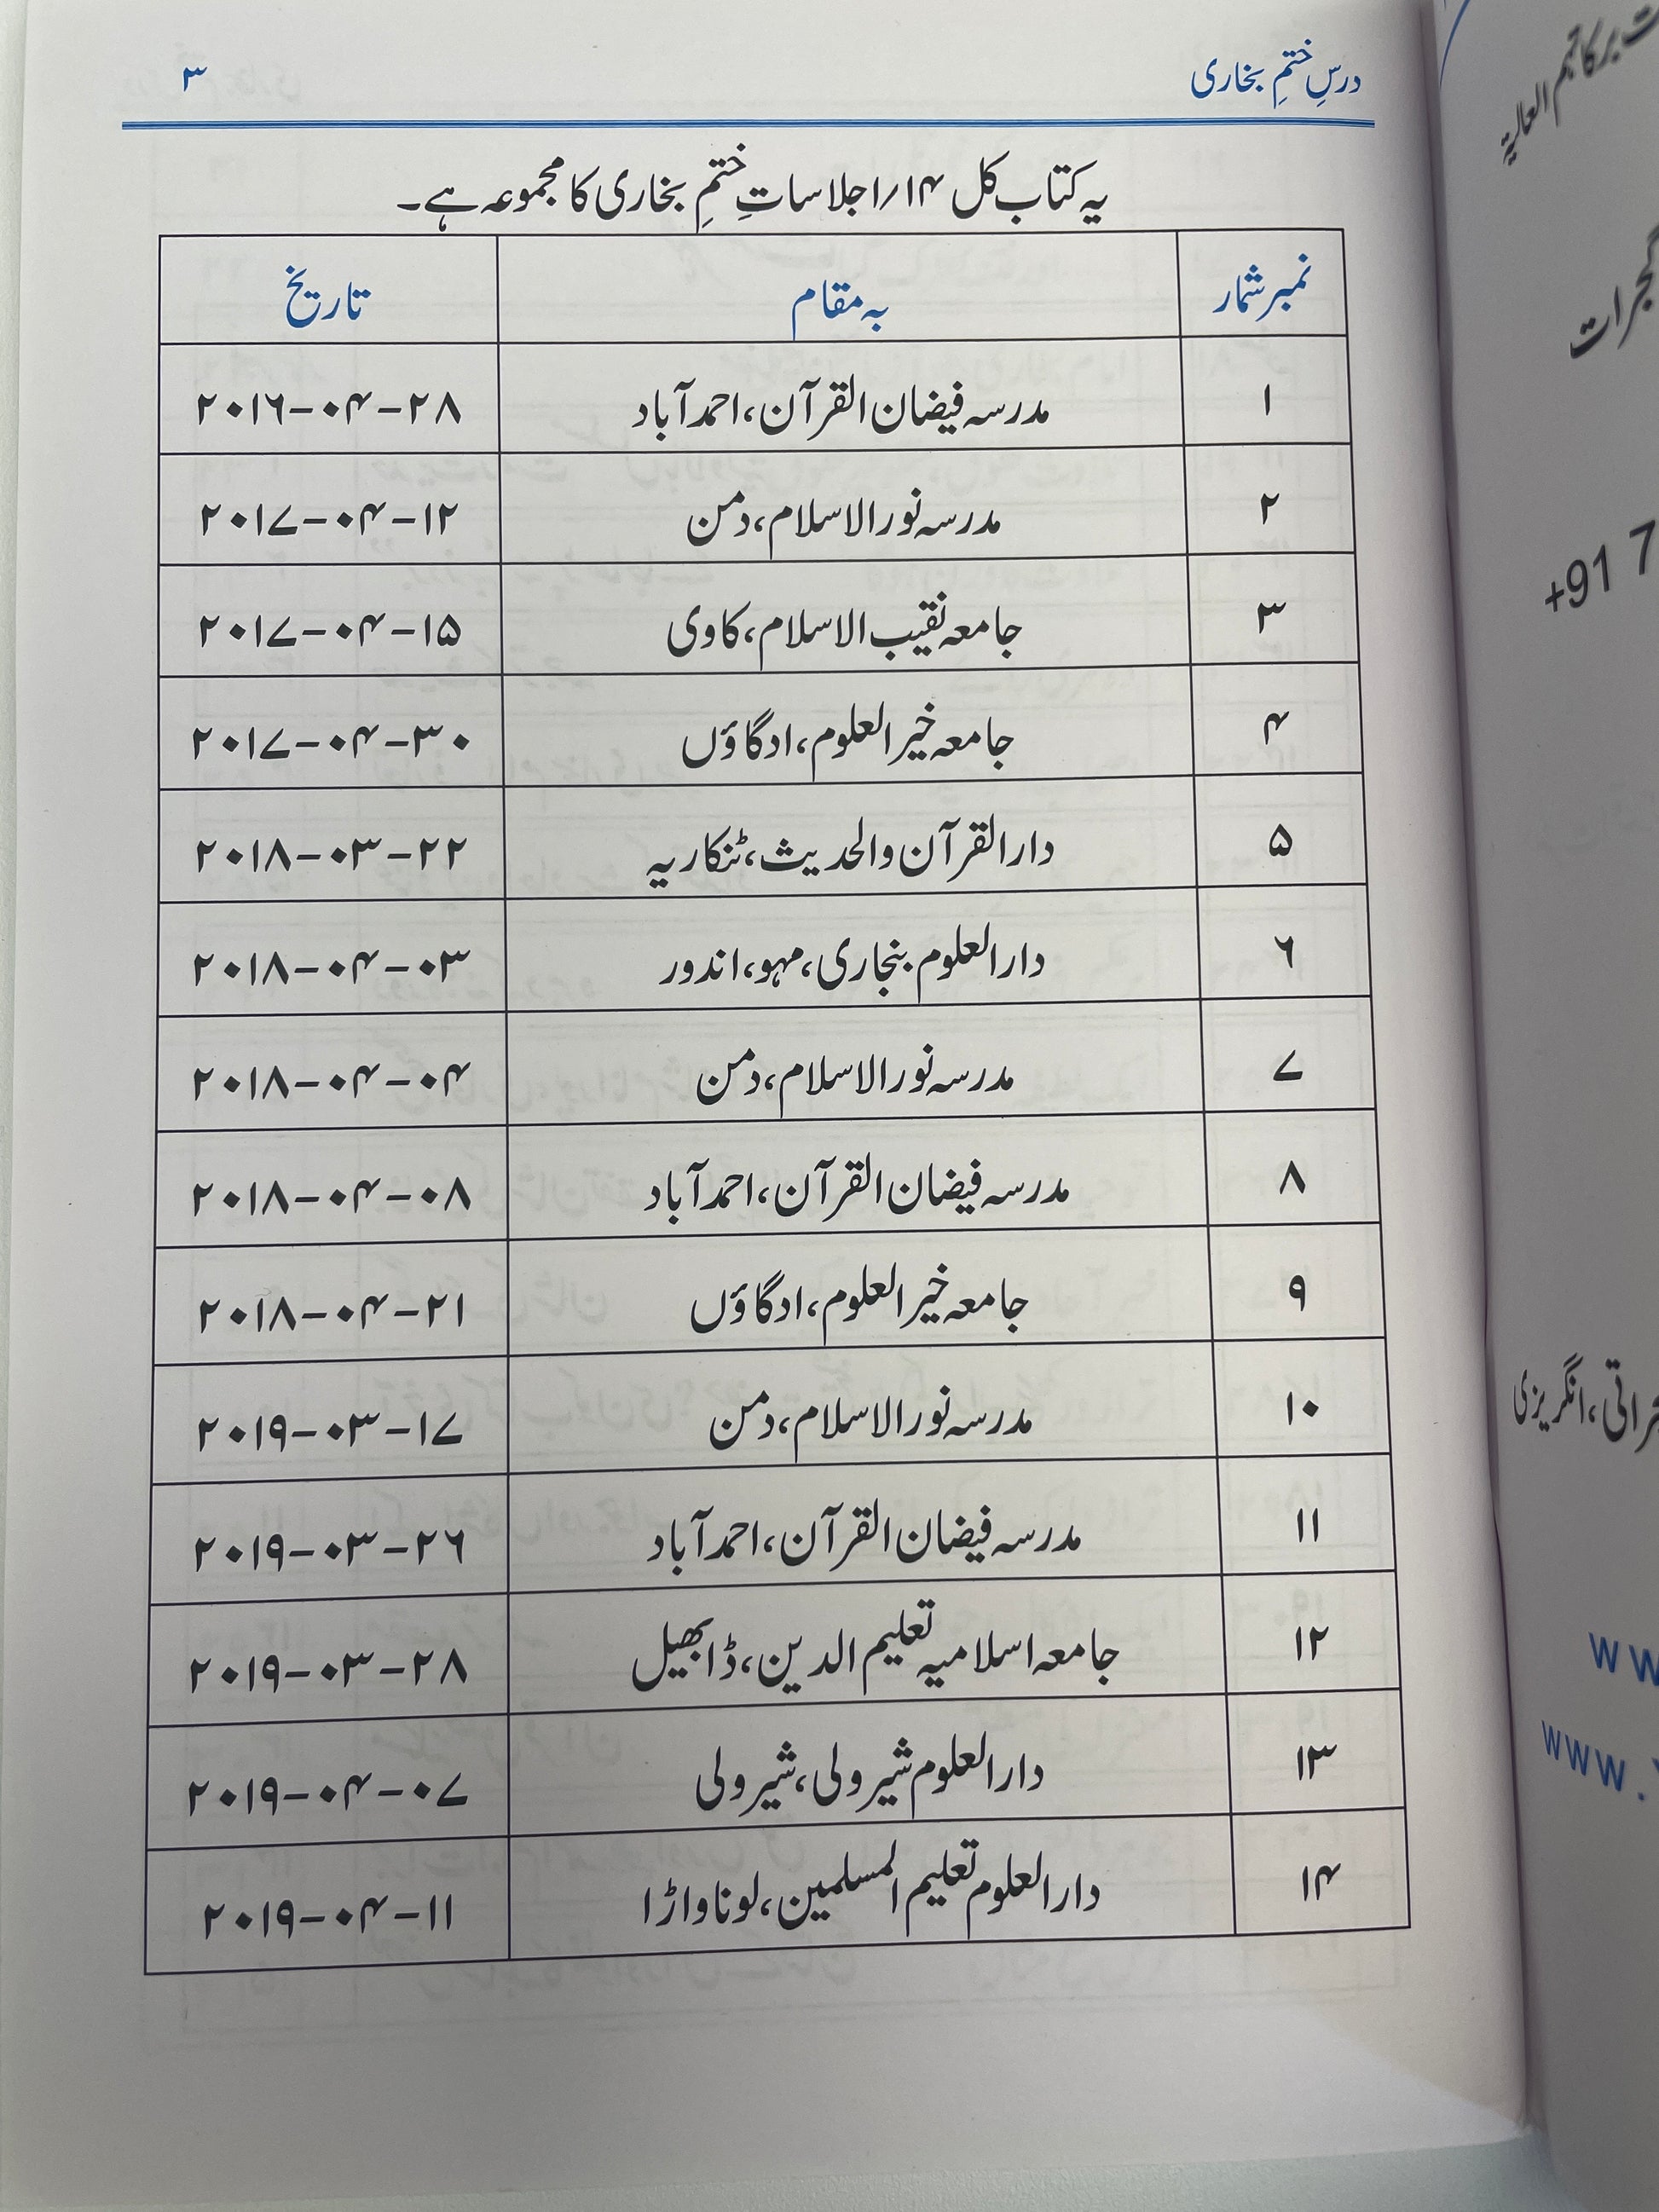 درسِ ختمِ بخاری ۳
یہ کتاب کل ۱۴/اجلاساتِ ختمِ بخاری کا مجموعہ ہے۔
نمبر شمار بہ مقام تاریخ
۱ مدرسہ فیضان القرآن، احمدآباد ۲۸-۰۴-۲۰۱۶
۲ مدرسہ نور الاسلام، دمن ۱۲-۰۴-۲۰۱۷
۳ جامعہ نقیب الاسلام، کاوی ۱۵-۰۴-۲۰۱۷
۴ جامعہ خیر العلوم، ادگاؤں ۳۰-۰۴-۲۰۱۷
۵ دار القرآن والحدیث، ٹنکاریہ ۲۲-۰۳-۲۰۱۸
۶ دار العلوم بنجاری، مہو، اندور ۰۳-۰۴-۲۰۱۸
۷ مدرسہ نور الاسلام، دمن ۰۴-۰۴-۲۰۱۸
۸ مدرسہ فیضان القرآن، احمدآباد ۰۸-۰۴-۲۰۱۸
۹ جامعہ خیر العلوم، ادگاؤں ۲۱-۰۴-۲۰۱۸
۱۰ مدرسہ نور الاسلام، دمن ۱۷-۰۳-۲۰۱۹
۱۱ مدرسہ فیضان القرآن، احمدآباد ۲۶-۰۳-۲۰۱۹
۱۲ جامعہ اسلامیہ تعلیم الدین، ڈابھیل ۲۸-۰۳-۲۰۱۹
۱۳ دار العلوم شیرولی، شیرولی ۰۷-۰۴-۲۰۱۹
۱۴ دار العلوم تعلیم المسلمین، لوناواڑا ۱۱-۰۴-۲۰۱۹
برکاتہم العالیۃ
گجرات
+91 7
انگریزی
ww
www.